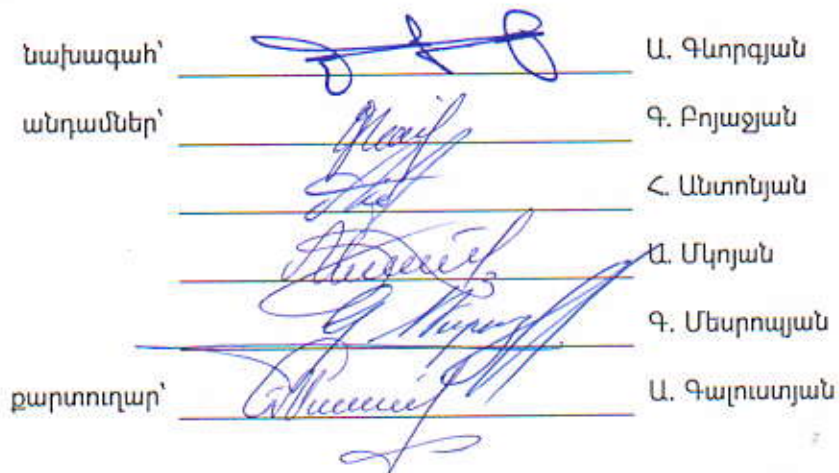 նախագահ՝ Ա. Գևորգյան
անդամներ՝ Գ. Բոյաջյան
Հ. Անտոնյան
Ա. Մկոյան
Գ. Մեսրոպյան
քարտուղար՝ Ա. Գալուստյան